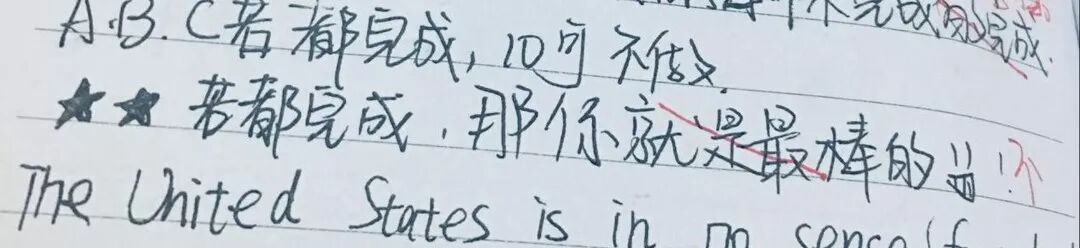 不完成都完成.
A.B.C若都完成,10可不做.
★★ 若都完成.那你就是最棒的!!!
The United States is in no sense